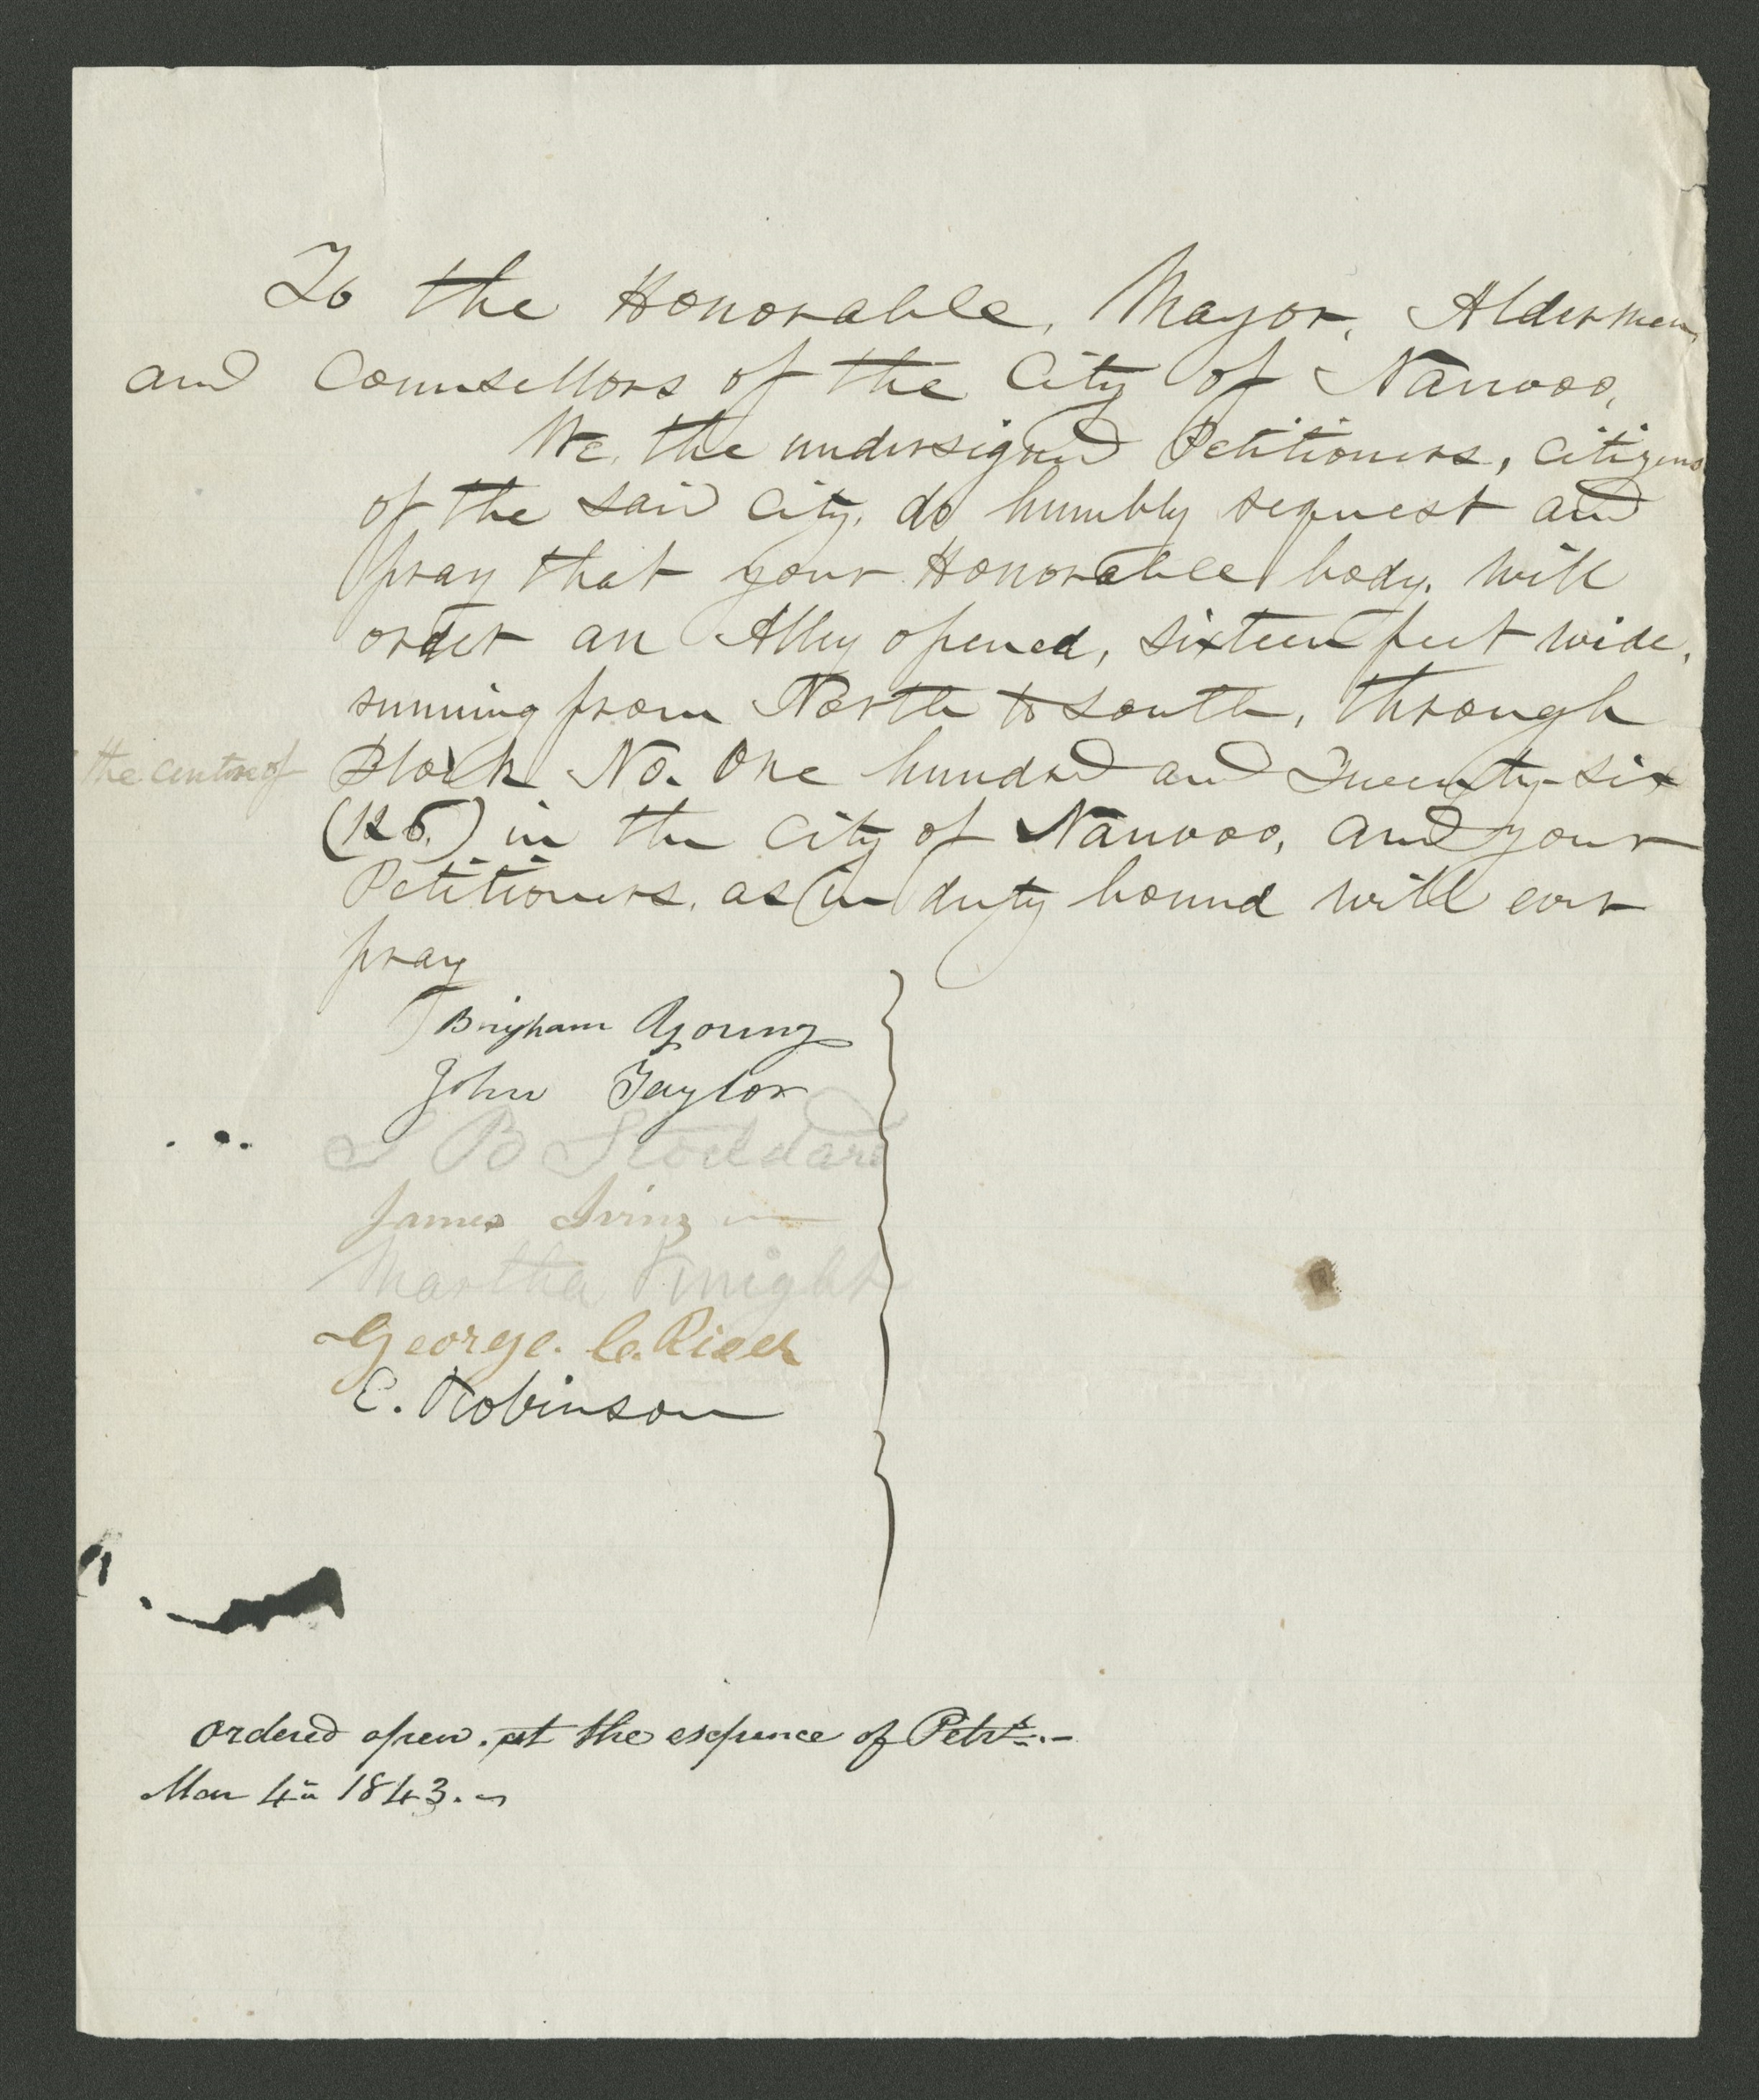 To the Honorable, Mayor, Aldermen
and Counsellors of the City of Nauvoo,
We, the undersigned Petitioners, citizens
of the said city, do humbly request and
pray that your Honorable body, will
order an Alley opened, sixteen feet wide,
running from North to South, through
the centre of Block No. One hundred and Twenty-six
(126.) in the City of Nauvoo, and your
Petitioners, as in duty bound will ever
pray
Brigham Young
John Taylor
S B Stoddard
James Iving
Martha Knight
George. C. Riser
E. Robinson
Ordered open. at the expence of Petrs.–
Mar 4th 1843.